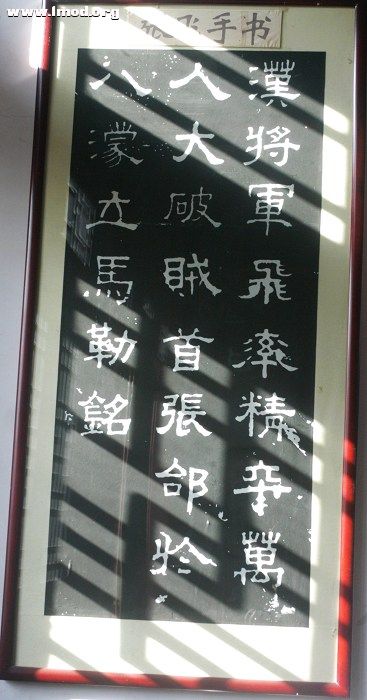 www.lmod.org
张飞手书
漢将軍飛率精卒萬
人大破賊首張郃於
八濛立馬勒銘